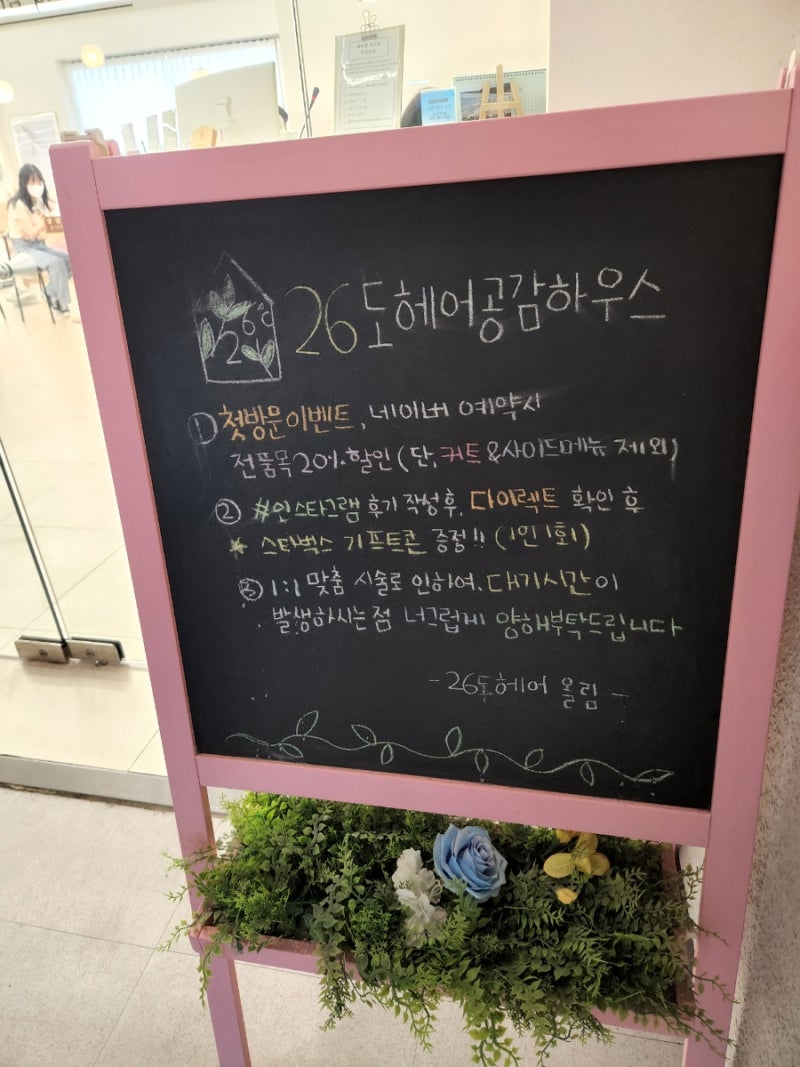 26℃
26도헤어공감하우스
① 첫방문이벤트, 네이버 예약시
전품목20%할인(단, 커트&사이드메뉴 제외)
② #인스타그램 후기 작성후, 다이렉트 확인 후
★ 스타벅스 기프트콘 증정!! (1인 1회)
③ 1:1 맞춤 시술로 인하여, 대기시간이
발생하시는 점 너그럽게 양해부탁드립니다
-26도헤어 올림-